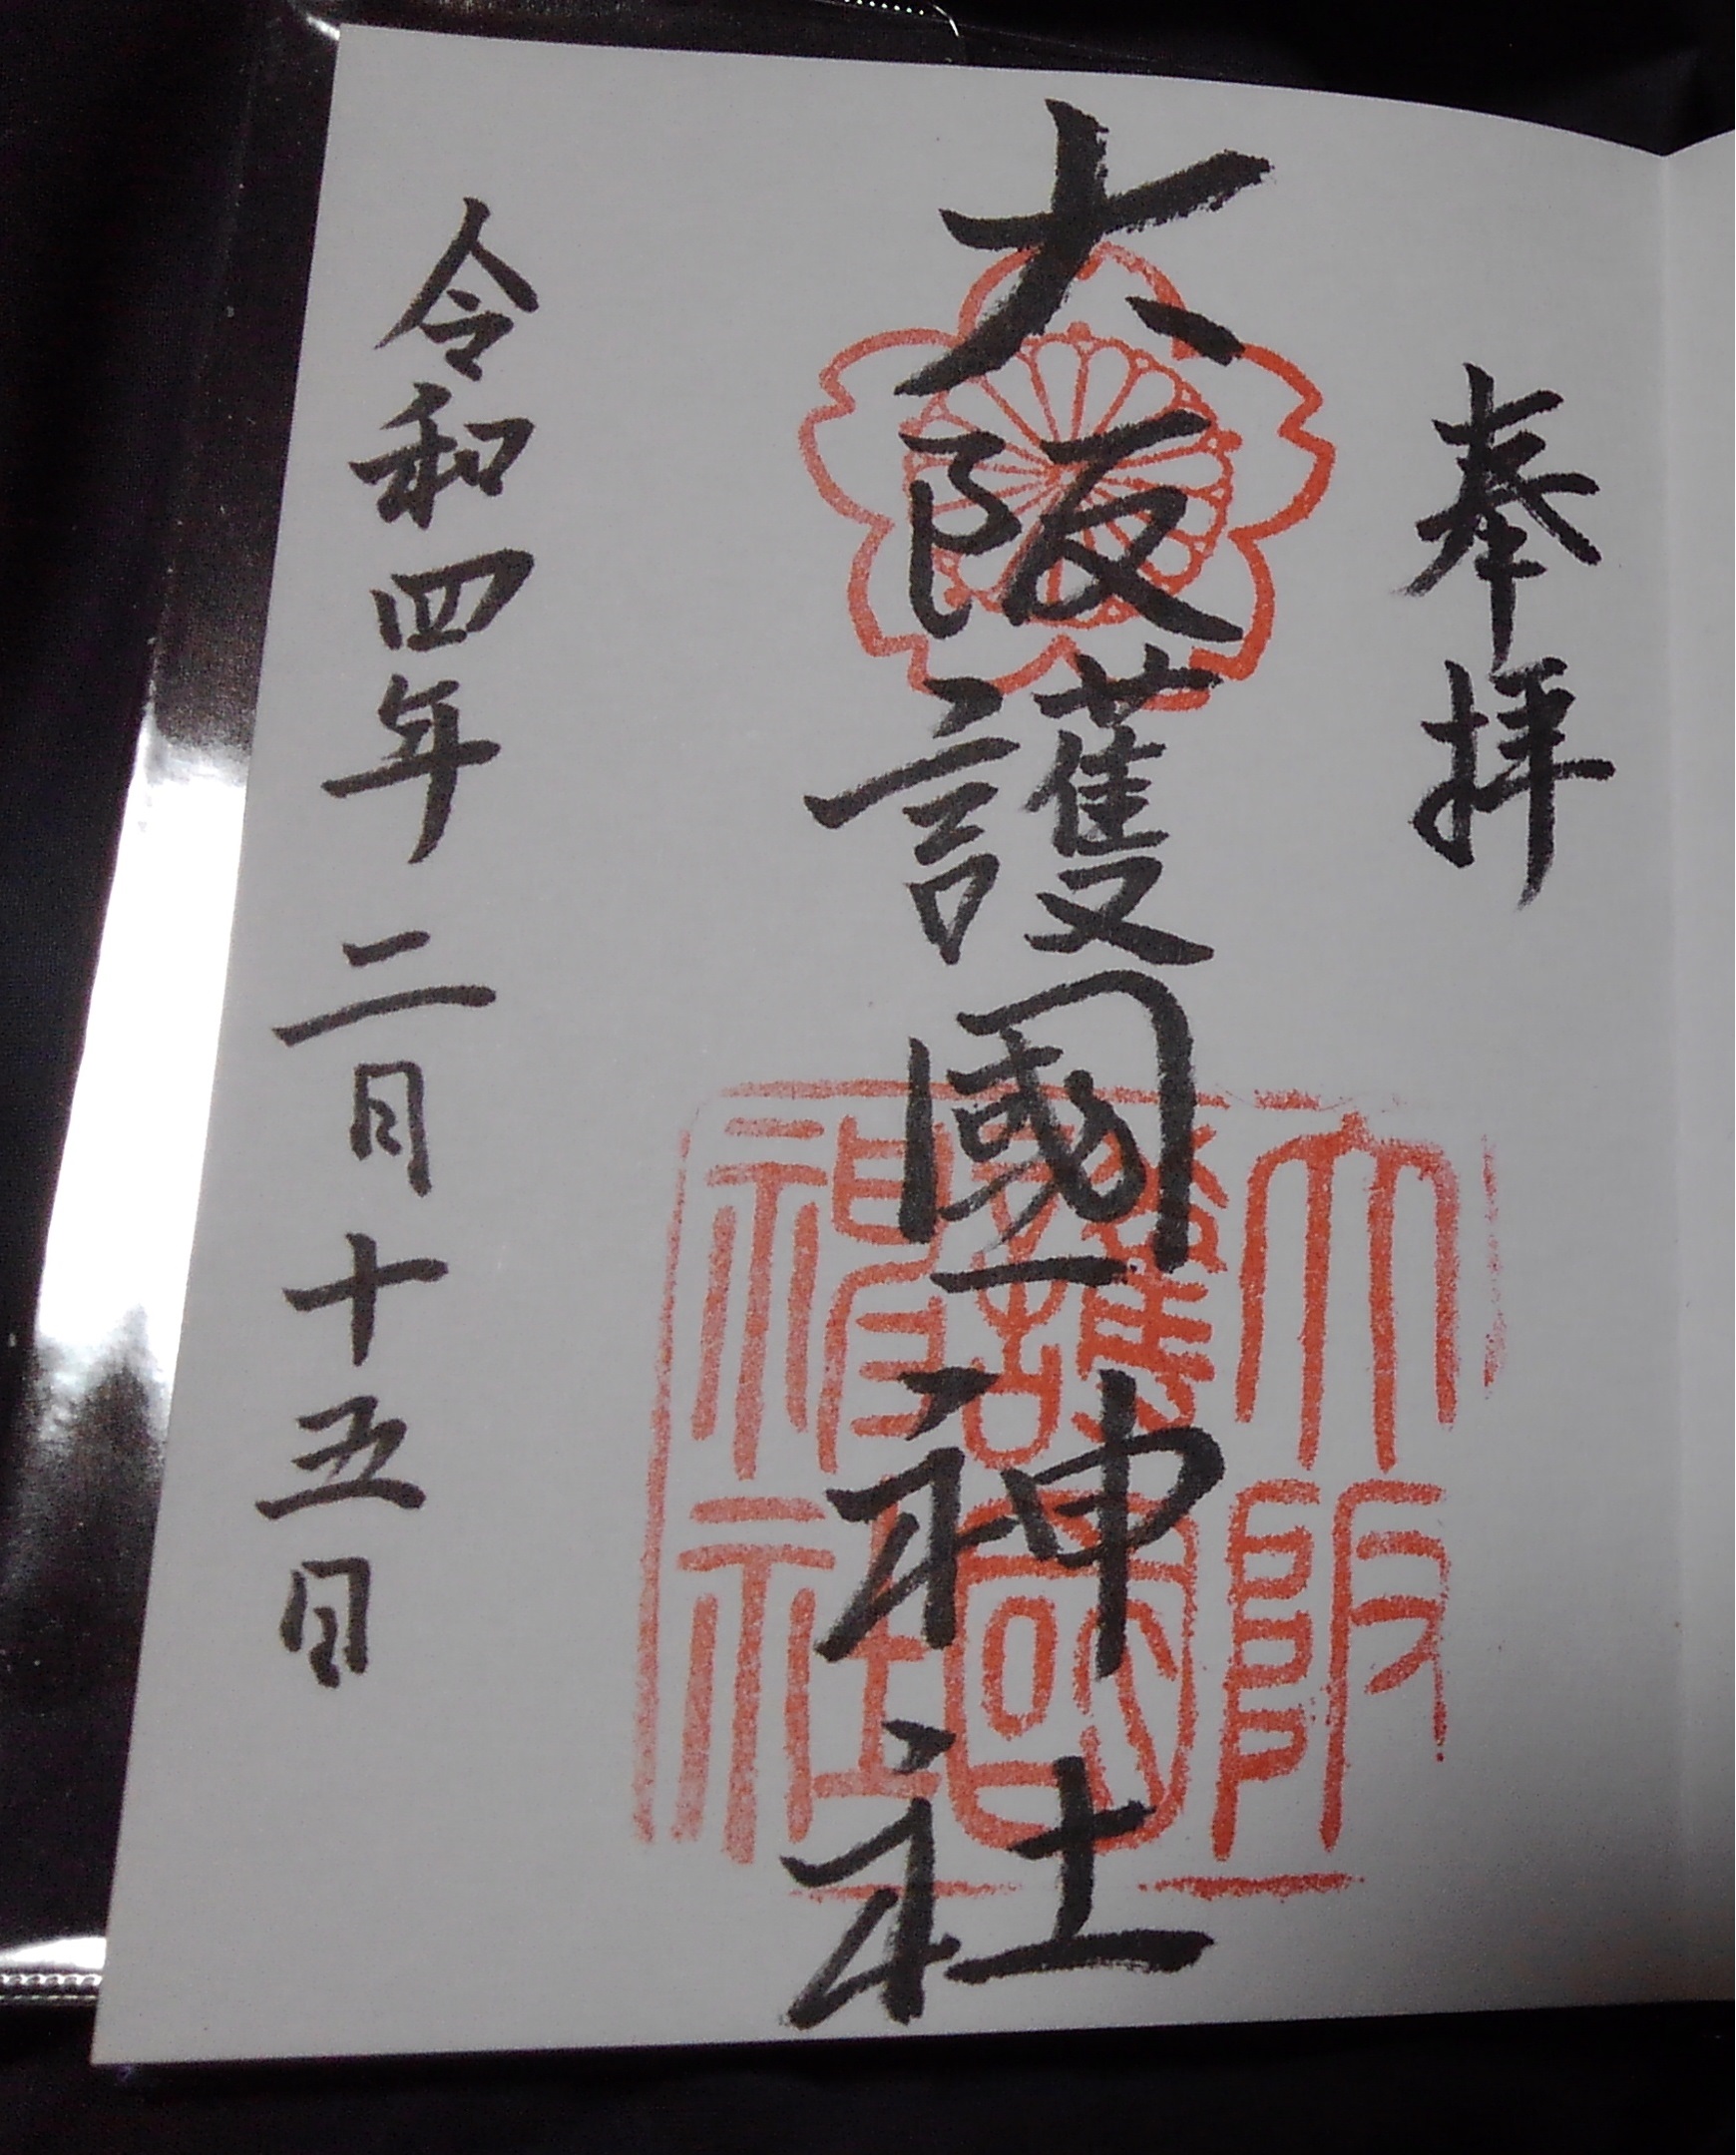 奉拝
大阪護國神社
大阪護國神社
令和四年二月十五日